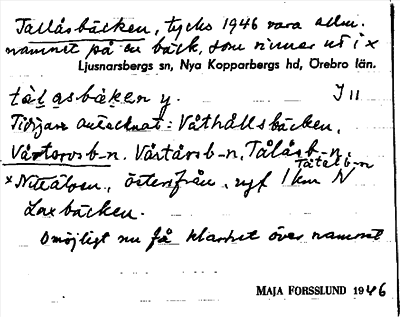 Tallåsbäcken, tycks 1946 vara allm.
namnet på en bäck, som rinner ut i x
Ljusnarsbergs sn, Nya Kopparbergs hd, Örebro län.
tålasbäken y. J 11
Tidigare antecknat: Våthållsbäcken,
Vårtorosb-n. Vårtårsb-n, Tålåsb-n.
Tåtelb-n
x Nittälven, österifrån, ngt 1 km N
Laxbäcken.
Omöjligt nu få klarhet över namnet
MAJA FORSSLUND 1946